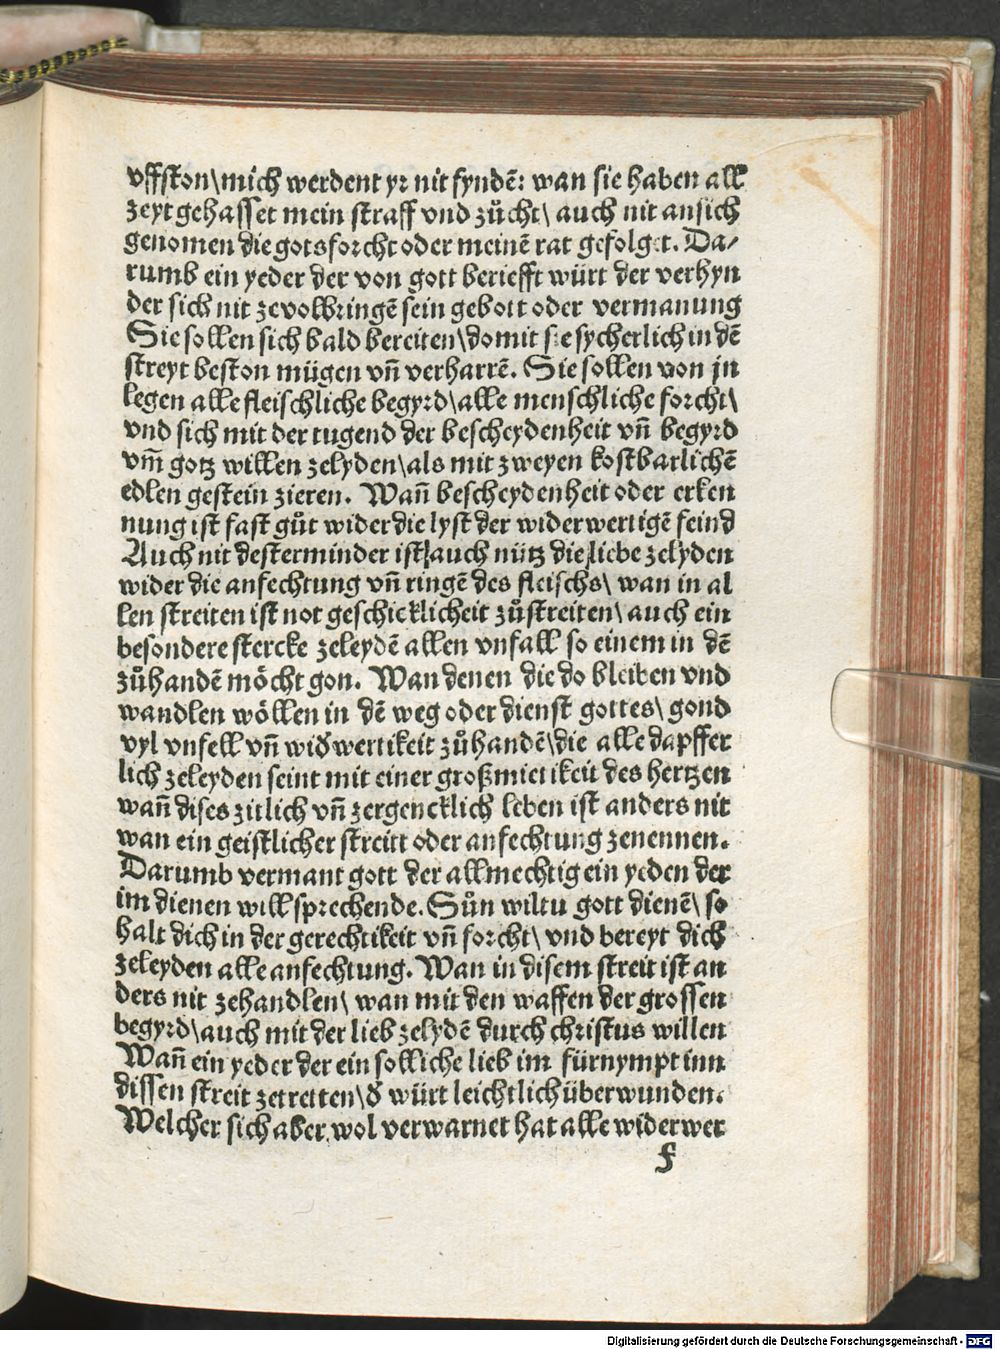 vffston\mich werdent yr nit fyndē: wan sie haben all
zeyt gehasset mein straff vnd zůcht\ auch nit ansich
genomen die gotsforcht oder meinē rat gefolget. Da⸗
rumb ein yeder der von gott beriefft würt der verhyn
der sich nit zevolbringē sein gebott oder vermanung
Sie sollen sich bald bereiten\domit sie sycherlich in dē
streyt beston mügen vñ verharrē. Sie sollen von jn
legen alle fleischliche begyrd\alle menschliche forcht\
vnd sich mit der tugend der bescheydenheit vñ begyrd
vm̄ gotz willen zelyden\als mit zweyen kostbarlichē
edlen gestein zieren. Wañ bescheydenheit oder erken
nung ist fast gůt wider die lyst der widerwertigē feind
Auch nit desterminder ist auch nütz die liebe zelyden
wider die anfechtung vñ ringē des fleischs\ wan in al
len streiten ist not geschicklicheit zůstreiten\ auch ein
besondere stercke zeleydē allen vnfall so einem in dē
zůhandē möcht gon. Wan denen die do bleiben vnd
wandlen wöllen in dē weg oder dienst gottes\ gond
vyl vnfell vñ widꝰwertikeit zůhandē\die alle dapffer
lich zeleyden seint mit einer großmietikeit des hertzen
wañ dises zitlich vñ zergencklich leben ist anders nit
wan ein geistlicher streitt oder anfechtung zenennen.
Darumb vermant gott der allmechtig ein yeden der
im dienen will sprechende. Sůn wiltu gott dienē\ so
halt dich in der gerechtikeit vñ forcht\ vnd bereyt dich
zeleyden alle anfechtung. Wan in disem streit ist an
ders nit zehandlen\ wan mit den waffen der grossen
begyrd\auch mit der lieb zelydē durch christus willen
Wañ ein yeder der ein solliche lieb im fürnympt inn
dissen streit zetretten\dꝰ würt leichtlich überwunden.
Welcher sich aber wol verwarnet hat alle widerwer
f
Digitalisierung gefördert durch die Deutsche Forschungsgemeinschaft - DFG